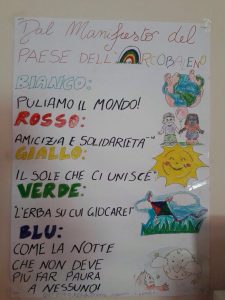 Dal Manifesto del
PAESE DELL'ARCOBALENO
BIANCO:
PULIAMO IL MONDO!
ROSSO:
AMICIZIA E SOLIDARIETÀ
GIALLO:
IL SOLE CHE CI UNISCE
VERDE:
L'ERBA SU CUI GIOCARE!
BLU:
COME LA NOTTE
CHE NON DEVE
PIÙ FAR PAURA
A NESSUNO!